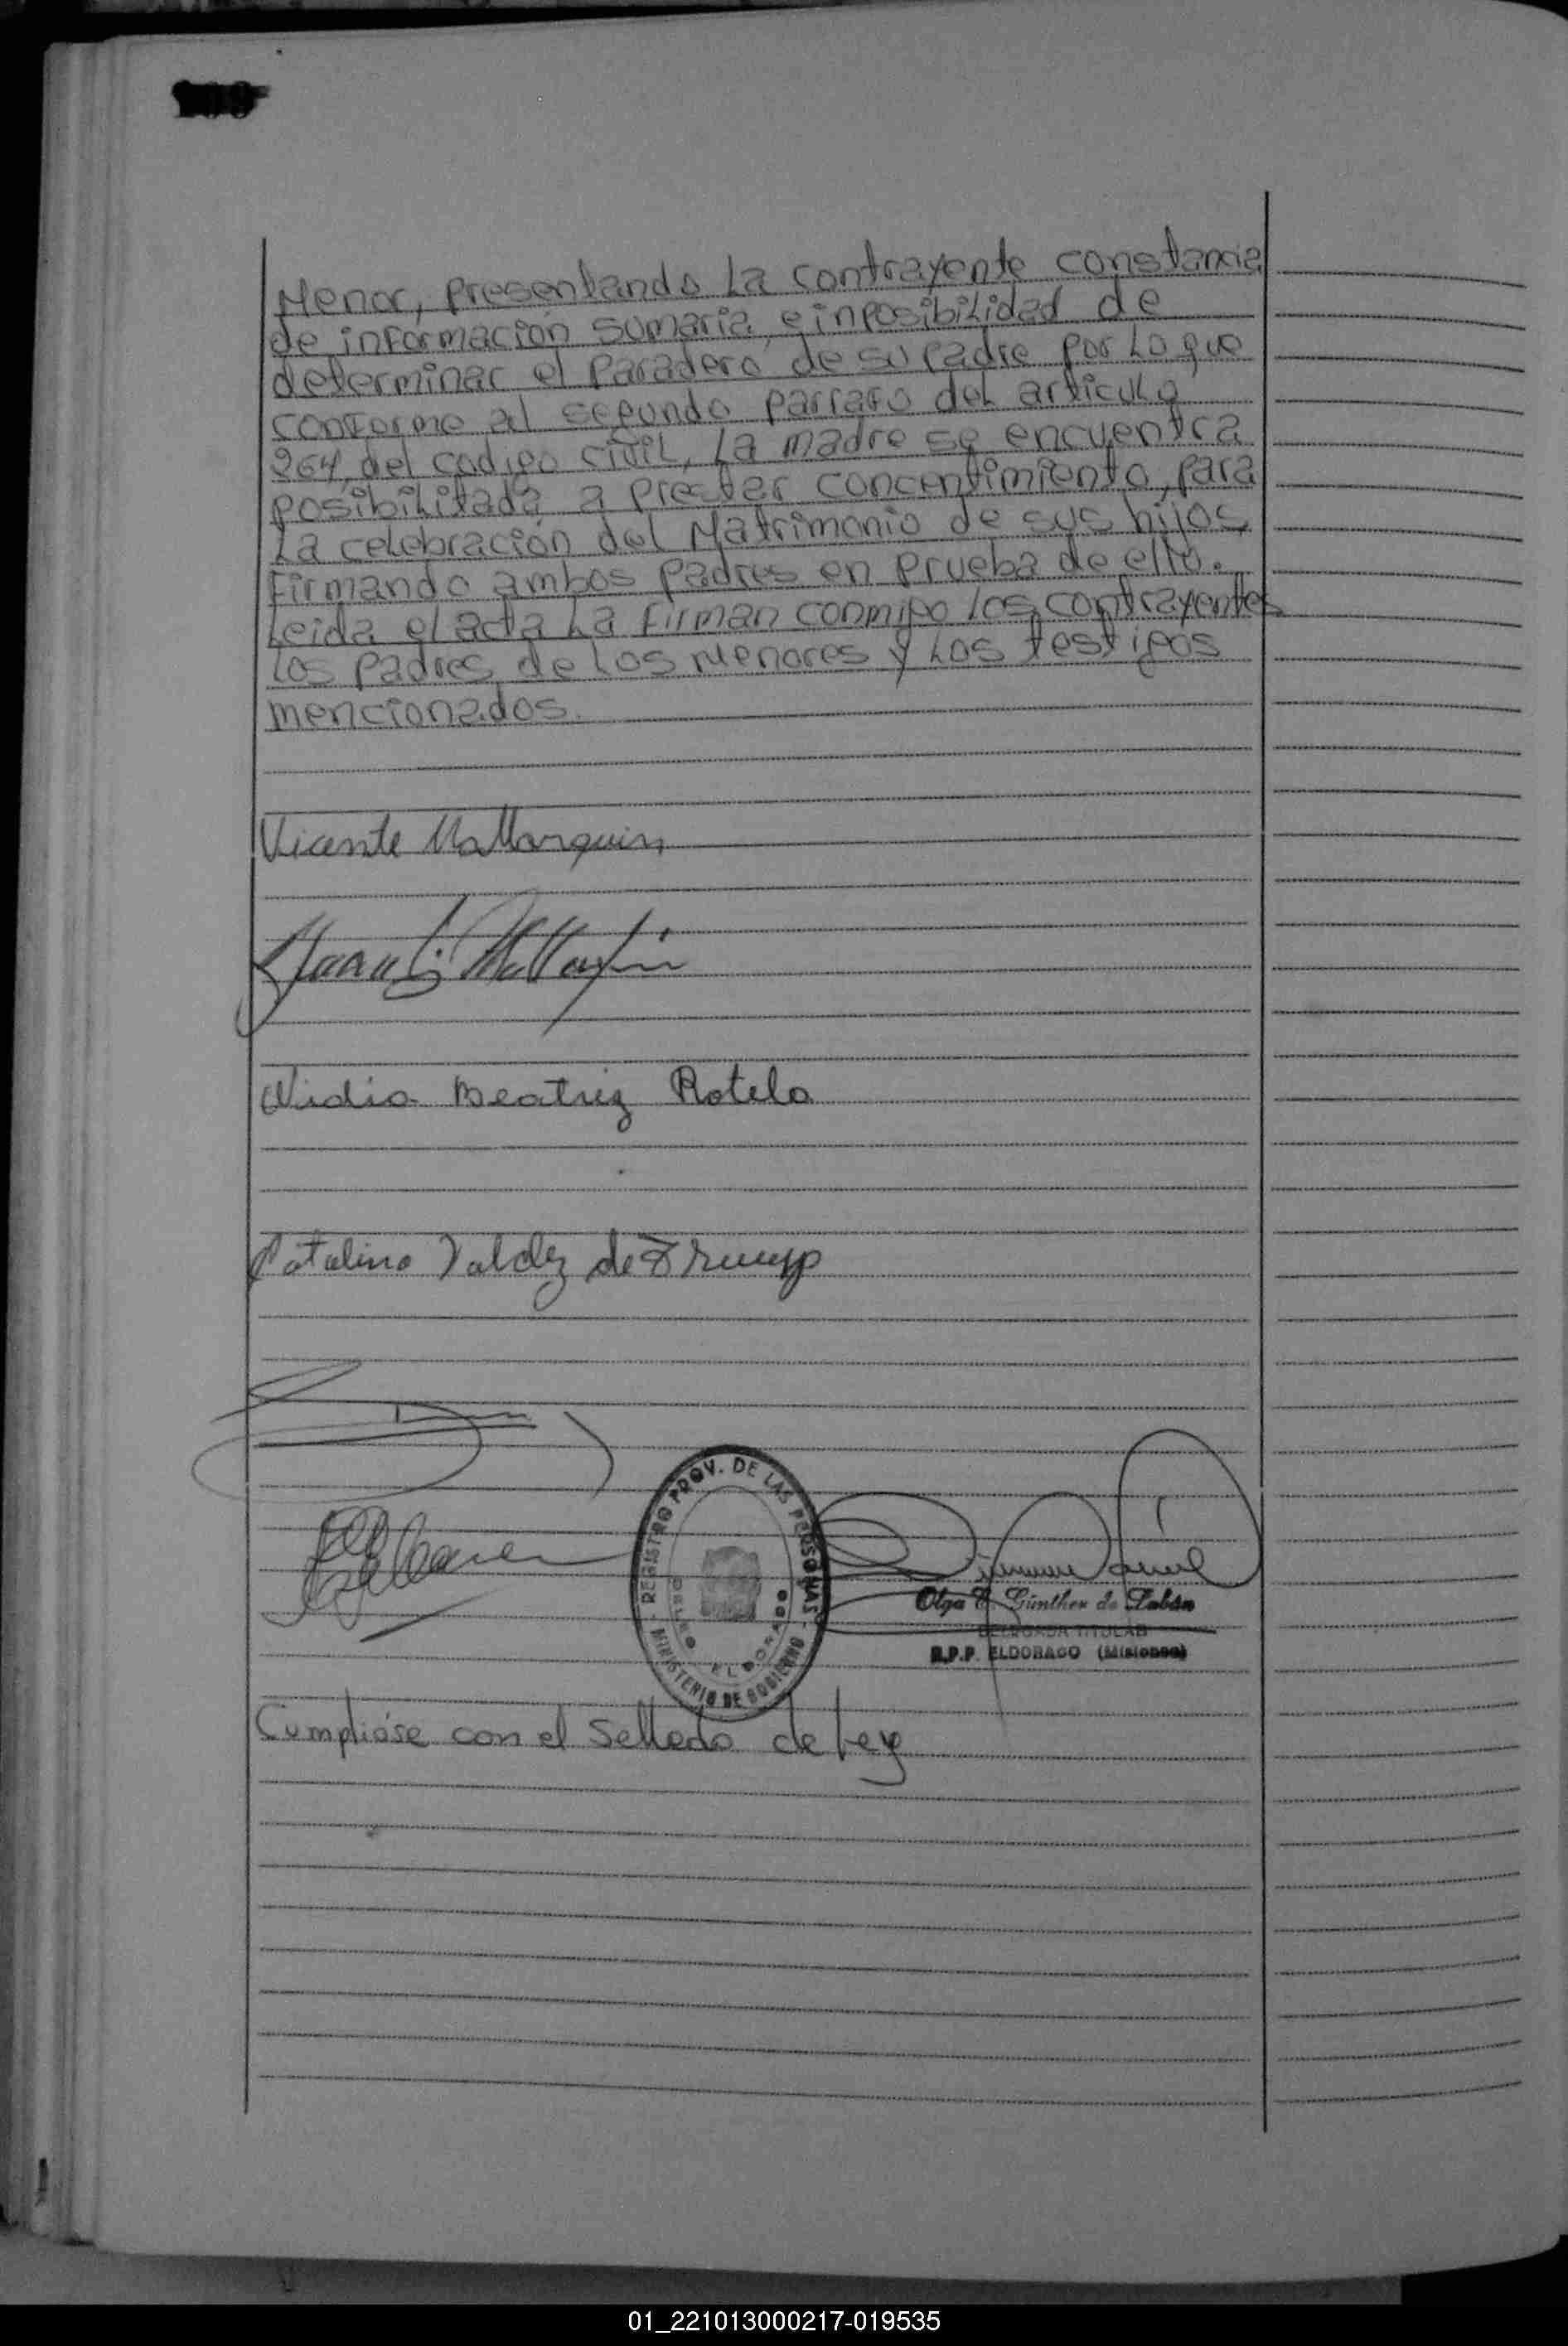 Menor, presentando La contrayente constancia
de información sumaria, e inposibilidad de
determinar el paradero de su padre por Lo que
conforme al segundo parrafo del articulo
264, del codigo civil, La madre se encuentra
posibilitada a prestar concentimiento, para
La celebración del Matrimonio de sus hijos,
Firmando ambos padres en prueba de ello.
Leida el acta La Firman conmigo los contrayentes
Los padres de Los Menores y Los testigos
mencionados.
Vicente Mallarquin
Nidia Beatriz Rotela
Catalina Valdez de
REGISTRO PROV. DE LAS PERSONAS
MINISTERIO DE GOBIERNO
ELDORADO
Olga E. Günther de Labán
DELEGADA TITULAR
R.P.P. ELDORADO (Misiones)
Cumplióse con el Sellado de Ley
01_221013000217-019535